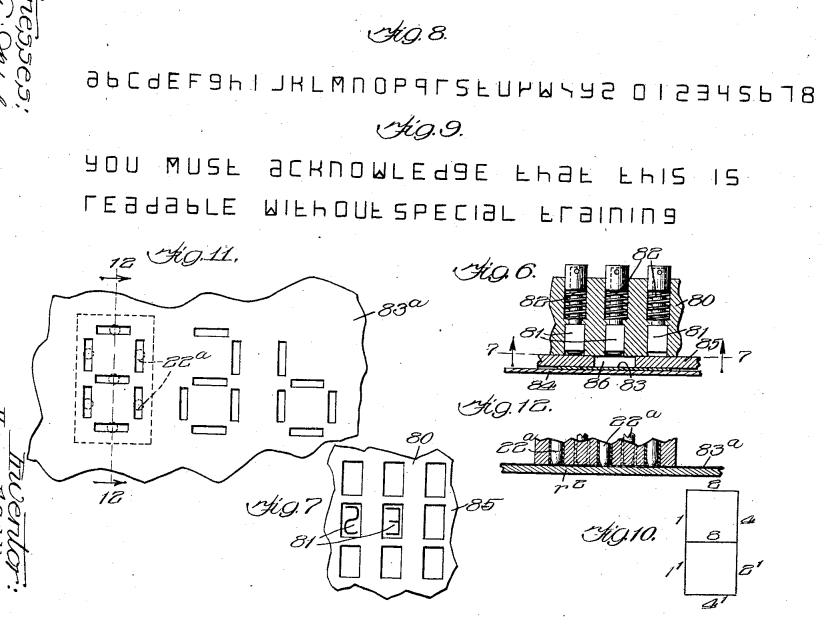 Fig. 8.
abCdEFghI JKLMnOPqrStUVWxyz 012345678
Fig. 9.
you MUSt acKnOWLEdgE that thIS IS
rEadabLE WIthOUt SPECIaL traInIng
Fig. 11.
12
83a
22a
12
Fig. 6.
82
82
80
81
81
85
7
7
84
86
83
Fig. 12.
22a
22a
83a
r2
Fig. 7
80
85
81
Fig. 10.
2
1
4
8
1'
2'
4'
Inventor: